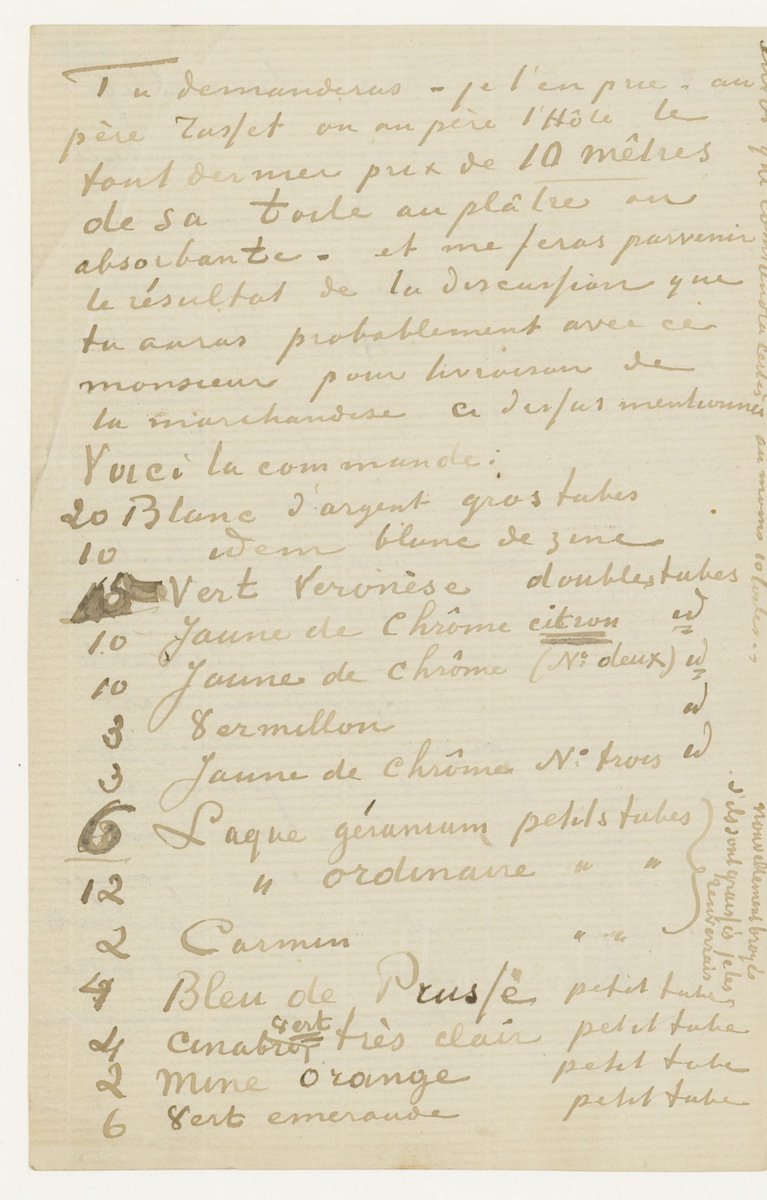 Tu demanderas – je t'en prie – au
père Tasset ou au père l'Hôte le
tout dernier prix de 10 mètres
de sa toile au plâtre ou
absorbante – et me feras parvenir
le résultat de la discussion que
tu auras probablement avec ce
monsieur pour livraison de
la marchandise ci dessus mentionnée
Voici la commande:
20 Blanc d'argent gros tubes
10 idem blanc de zinc
15 Vert Veronèse doubles tubes
10 Jaune de Chrôme citron id
10 Jaune de Chrôme (No. deux) id
3 Vermillon id
3 Jaune de Chrôme No. trois id
6 Laque géranium petits tubes
12 " ordinaire " "
nouvellement broyés
s'ils sont graissés je les
renverrais
2 Carmin " "
4 Bleu de Prusse petit tube
4 cinabre vert très clair petit tube
2 mine orange petit tube
6 vert emeraude petit tube
au moins 10 toiles.